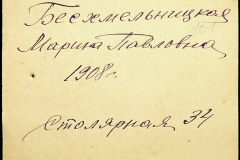 Бесхмельницкая
Мария Павловна
1908г.
Столярная 34